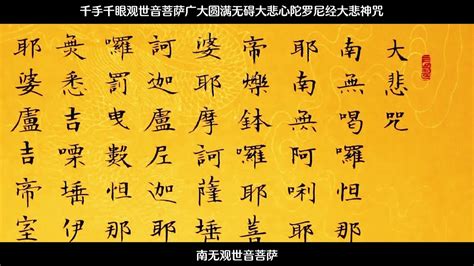 千手千眼观世音菩萨广大圆满无碍大悲心陀罗尼经大悲神咒
大悲咒
南無喝囉怛那
耶南無阿唎耶
帝爍鉢囉耶菩
婆耶摩訶薩埵
訶迦盧尼迦耶
囉罰曳數怛那
無悉吉嘌埵伊
耶婆盧吉帝室
南无观世音菩萨